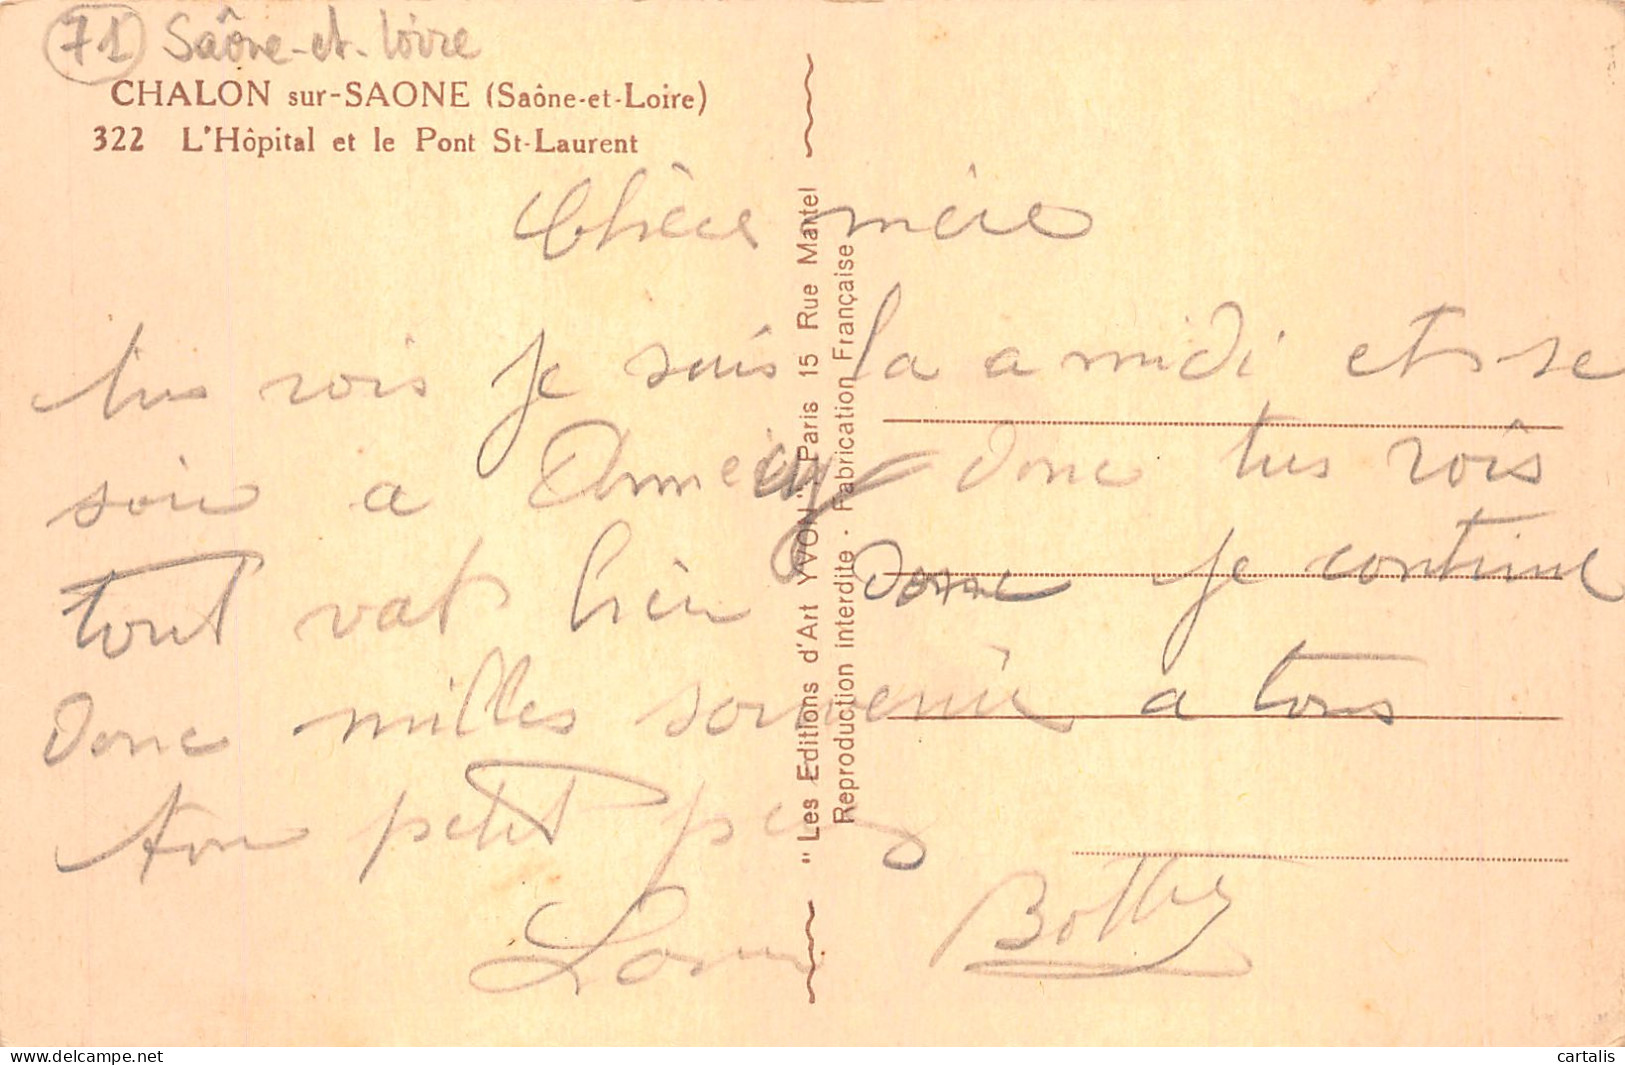 71 Saône-et-Loire
CHALON sur-SAONE (Saône-et-Loire)
322 L'Hôpital et le Pont St-Laurent
Chère mère
tus vois je suis la a midi et se
soir a Annecy donc tus vois
tout vat bien donc je continue
donc milles souvenir a tous
ton petit
"Les Editions d'Art YVON" Paris 15 Rue Martel
Reproduction interdite - Fabrication Française
delcampe.net
cartalis